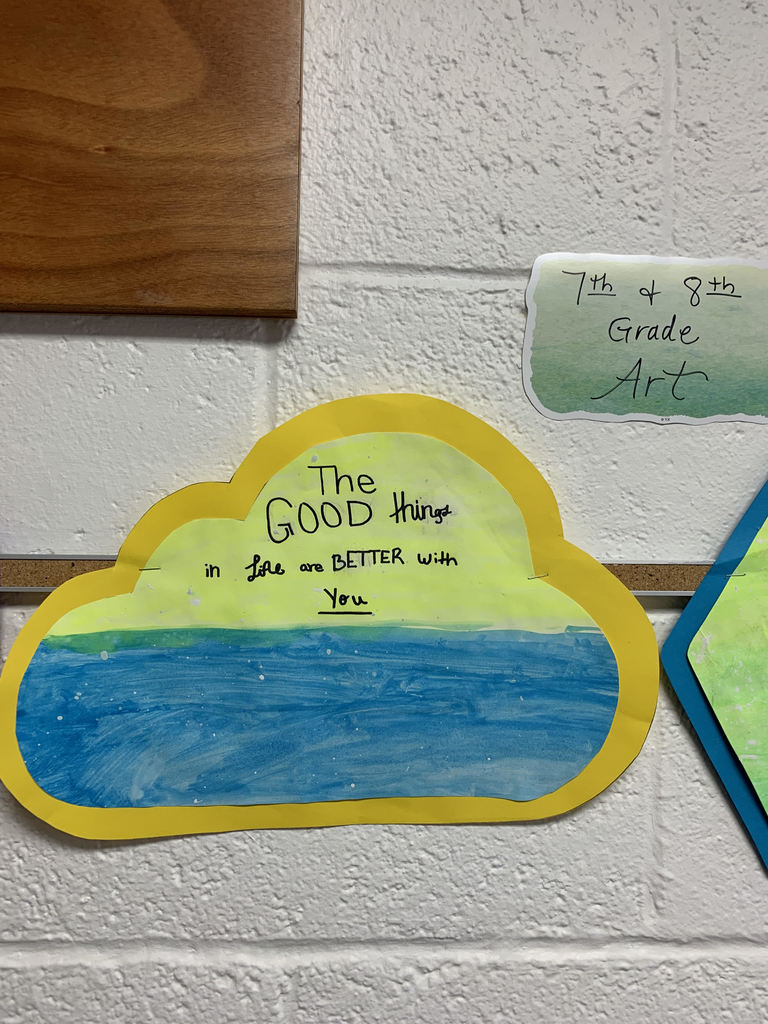 7th & 8th
Grade
Art
The
GOOD things
in Life are BETTER with
You